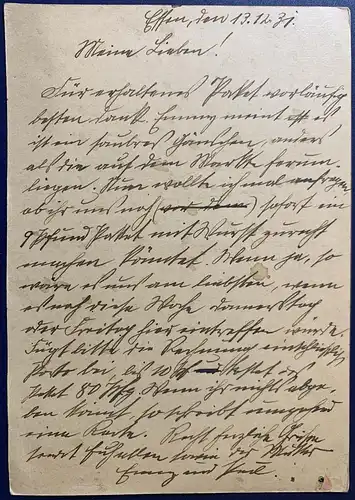 Essen, den 13.12.31.
Meine Lieben!
Für erhaltenes Paket vorläufig
besten Dank. Emmy meint es
ist ein sauberes Gänschen, anders
als die auf dem Markte herum
liegen. Nun wollte ich mal anfragen
ob ihr uns noch sofort ein
9 Pfund Paket mit Wurst zurecht
machen könntet. Wenn ja, so
wäre es uns am liebsten, wenn
es noch diese Woche Donnerstag
oder Freitag hier eintreffen würde.
Fügt bitte die Rechnung einschließlich
Porto bei, bis 10 kostet das
Paket 80 Pfg. Wenn ihr nichts abge
ben könnt, so schreibt umgehend
eine Karte. Recht herzliche Grüße
sendet Euch allen sowie der Mutter
Emmy und